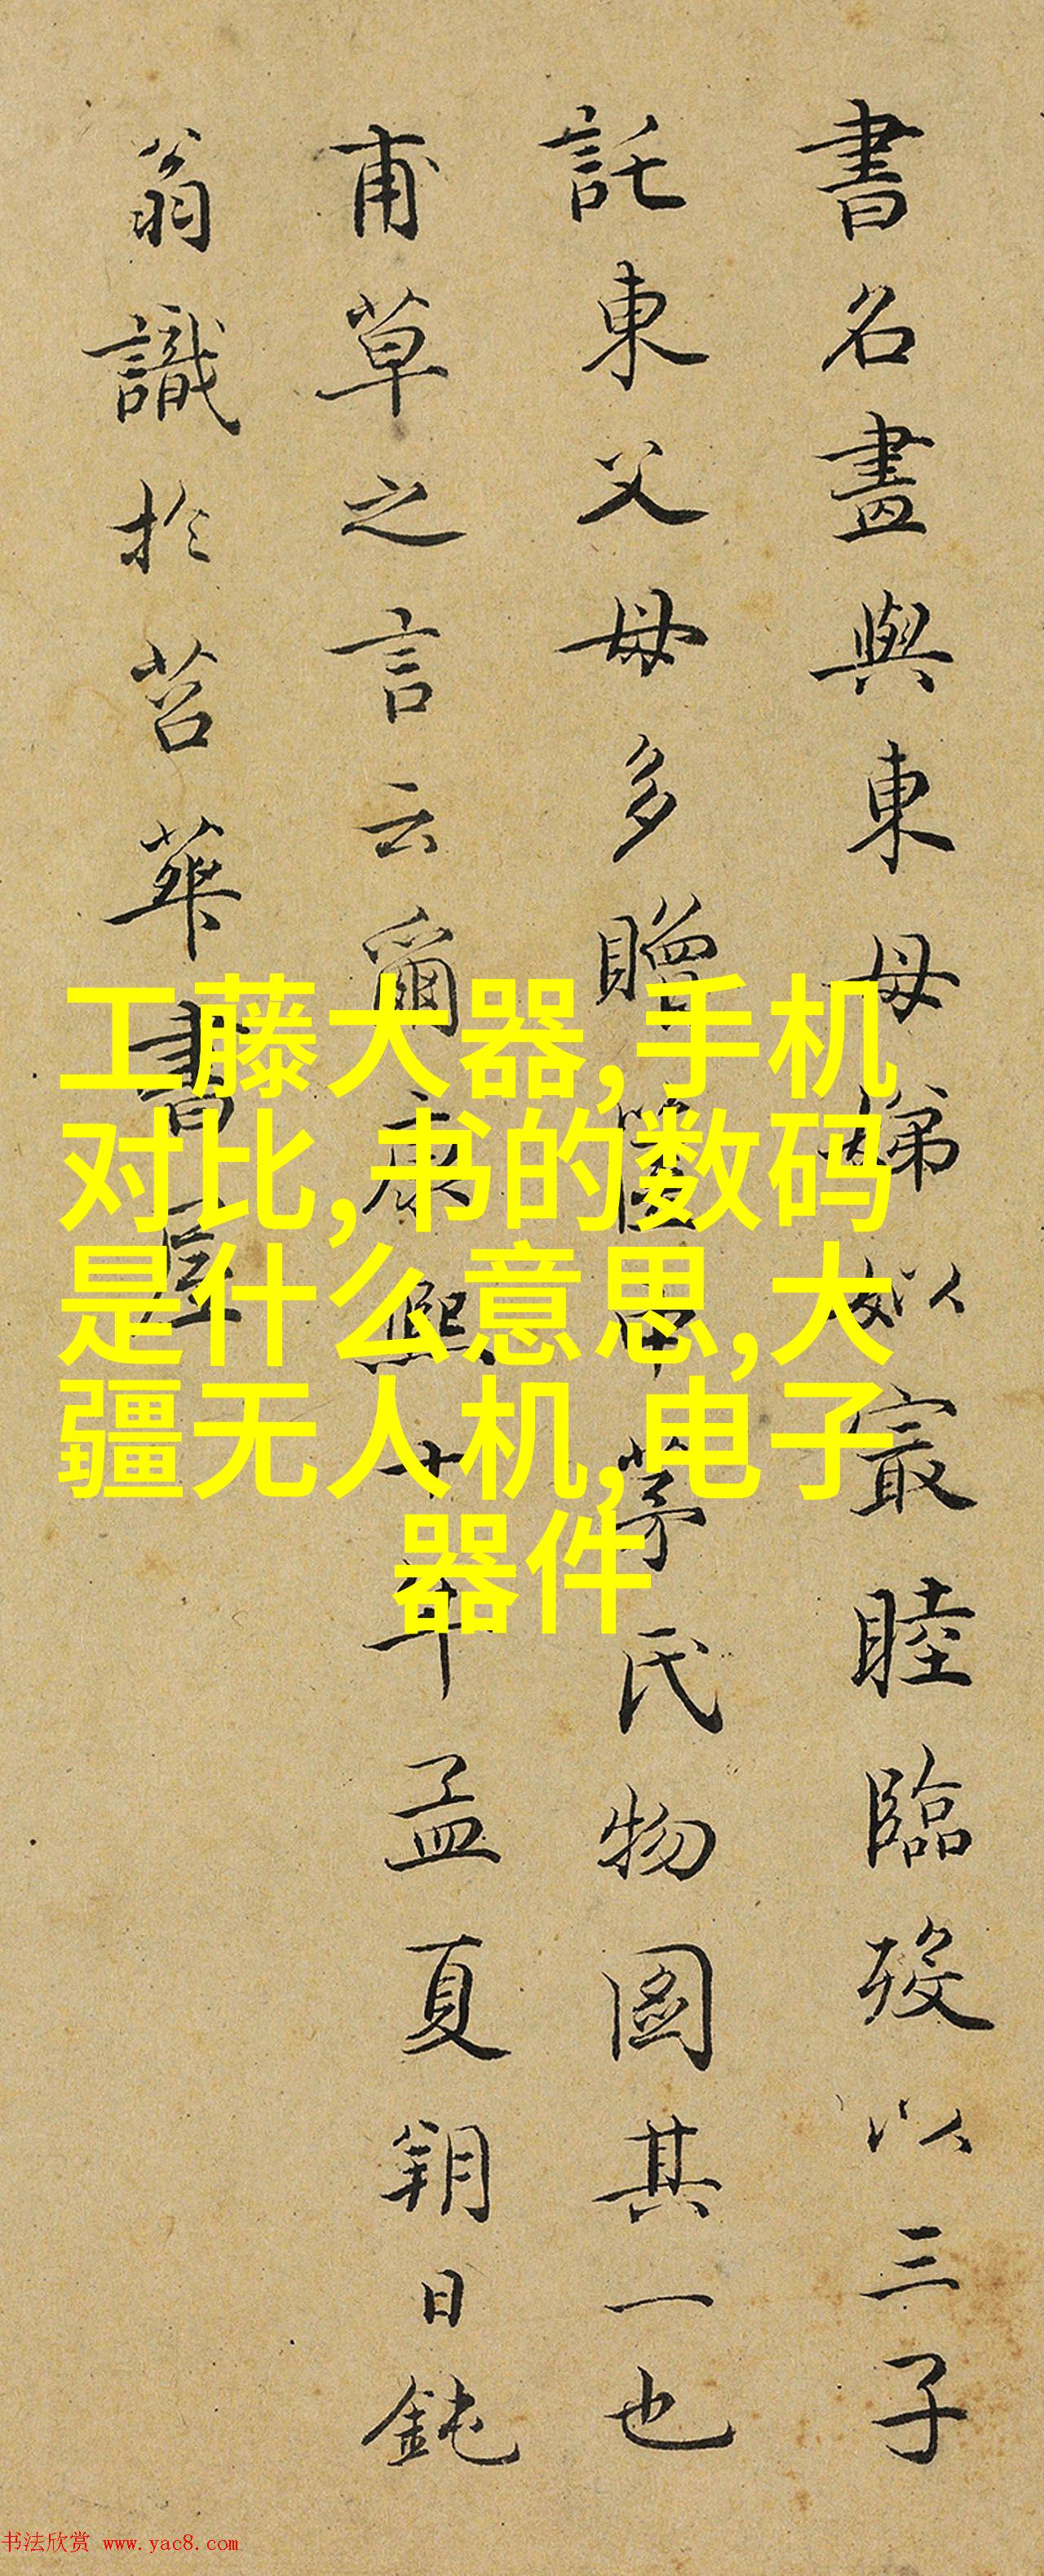 書名畫與東母娣姒最睦臨歿以三子
託東父母多贈篋中茅氏物圖其一也
甫草之言云爾康熙十年孟夏朔日鈍
翁識於苕華書屋
工藤大器,手机
对比,书的数码
是什么意思,大
疆无人机,电子
器件
书法欣赏 www.yac8.com